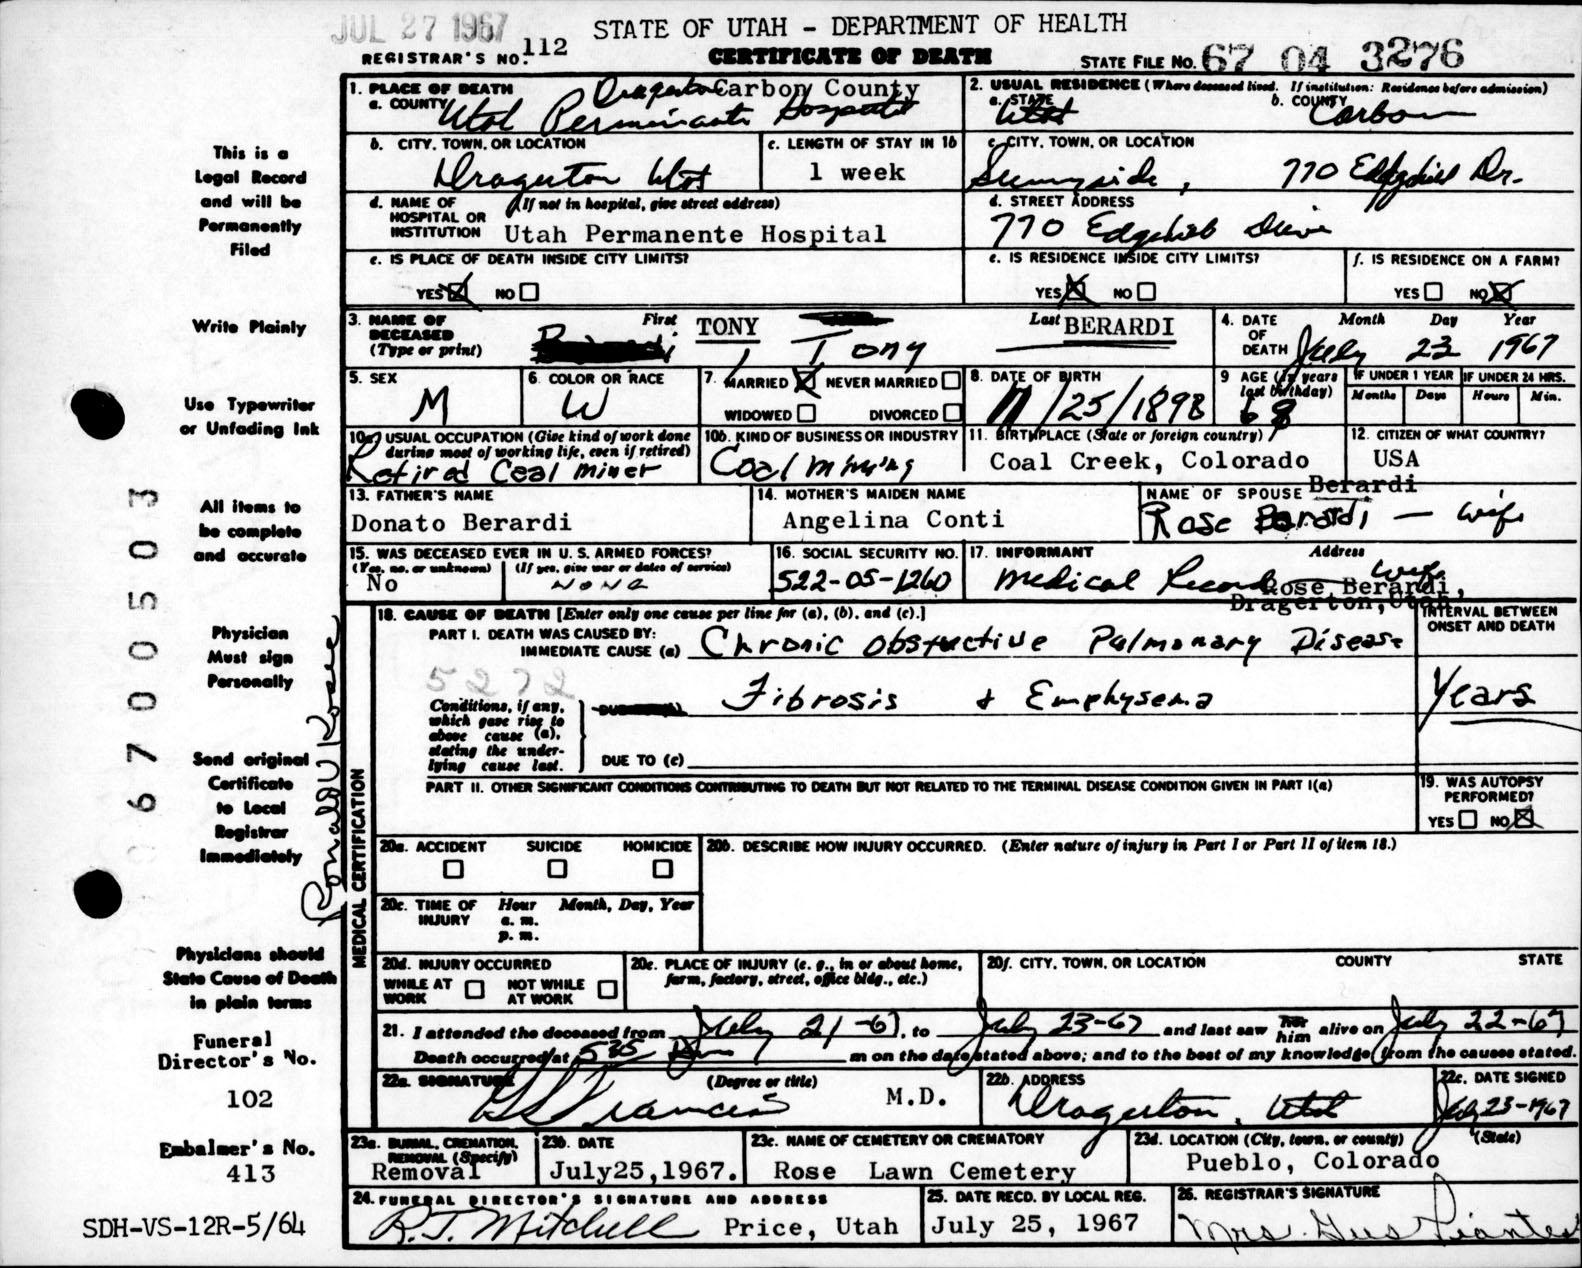 JUL 27 1967
STATE OF UTAH - DEPARTMENT OF HEALTH
REGISTRAR'S NO. 112
CERTIFICATE OF DEATH
STATE FILE No. 67 04 3276
This is a
Legal Record
and will be
Permanently
Filed
Write Plainly
Use Typewriter
or Unfading Ink
All items to
be complete
and accurate
Physician
Must sign
Personally
Send original
Certificate
to Local
Registrar
Immediately
Physicians should
State Cause of Death
in plain terms
Funeral
Director's No.
102
Embalmer's No.
413
SDH-VS-12R-5/64
6700503
1. PLACE OF DEATH
a. COUNTY
Dragerton Carbon County
Utah Permanente Hospital
2. USUAL RESIDENCE (Where deceased lived. If institution: Residence before admission)
a. STATE Utah
b. COUNTY Carbon
b. CITY, TOWN, OR LOCATION
Dragerton Utah
c. LENGTH OF STAY IN 1b
1 week
c. CITY, TOWN, OR LOCATION
Sunnyside, 770 Dr.
d. NAME OF HOSPITAL OR INSTITUTION (If not in hospital, give street address)
Utah Permanente Hospital
d. STREET ADDRESS
770
e. IS PLACE OF DEATH INSIDE CITY LIMITS?
YES NO
e. IS RESIDENCE INSIDE CITY LIMITS?
YES NO
f. IS RESIDENCE ON A FARM?
YES NO
3. NAME OF DECEASED (Type or print)
First TONY Last BERARDI
Tony
4. DATE OF DEATH Month Day Year
July 23 1967
5. SEX
M
6. COLOR OR RACE
W
7. MARRIED NEVER MARRIED
WIDOWED DIVORCED
8. DATE OF BIRTH
11/25/1898
9 AGE (In years last birthday)
68
IF UNDER 1 YEAR
Months Days
IF UNDER 24 HRS.
Hours Min.
10a. USUAL OCCUPATION (Give kind of work done during most of working life, even if retired)
Retired Coal Miner
10b. KIND OF BUSINESS OR INDUSTRY
Coal mining
11. BIRTHPLACE (State or foreign country)
Coal Creek, Colorado
12. CITIZEN OF WHAT COUNTRY?
USA
13. FATHER'S NAME
Donato Berardi
14. MOTHER'S MAIDEN NAME
Angelina Conti
NAME OF SPOUSE Berardi
Rose Berardi - wife
15. WAS DECEASED EVER IN U. S. ARMED FORCES?
(Yes, no, or unknown) (If yes, give war or dates of service)
No none
16. SOCIAL SECURITY NO.
522-05-1260
17. INFORMANT Address
Medical Record wife
Rose Berardi,
Dragerton, Utah
18. CAUSE OF DEATH [Enter only one cause per line for (a), (b), and (c).]
INTERVAL BETWEEN ONSET AND DEATH
PART I. DEATH WAS CAUSED BY:
IMMEDIATE CAUSE (a) Chronic Obstructive Pulmonary Disease
5272
Conditions, if any, which gave rise to above cause (a), stating the underlying cause last.
Fibrosis & Emphysema
Years
DUE TO (c)
PART II. OTHER SIGNIFICANT CONDITIONS CONTRIBUTING TO DEATH BUT NOT RELATED TO THE TERMINAL DISEASE CONDITION GIVEN IN PART I(a)
19. WAS AUTOPSY PERFORMED?
YES NO
MEDICAL CERTIFICATION
20a. ACCIDENT SUICIDE HOMICIDE
20b. DESCRIBE HOW INJURY OCCURRED. (Enter nature of injury in Part I or Part II of item 18.)
20c. TIME OF INJURY Hour Month, Day, Year
a. m.
p. m.
20d. INJURY OCCURRED
WHILE AT WORK NOT WHILE AT WORK
20e. PLACE OF INJURY (e. g., in or about home, farm, factory, street, office bldg., etc.)
20f. CITY, TOWN, OR LOCATION COUNTY STATE
21. I attended the deceased from July 21-67, to July 23-67 and last saw her him alive on July 22-67
Death occurred at 535 m on the date stated above; and to the best of my knowledge from the causes stated.
22a. SIGNATURE (Degree or title)
Francis M.D.
22b. ADDRESS
Dragerton, Utah
22c. DATE SIGNED
July 23-1967
23a. BURIAL, CREMATION, REMOVAL (Specify)
Removal
23b. DATE
July25,1967.
23c. NAME OF CEMETERY OR CREMATORY
Rose Lawn Cemetery
23d. LOCATION (City, town, or county) (State)
Pueblo, Colorado
24. FUNERAL DIRECTOR'S SIGNATURE AND ADDRESS
R.J. Mitchell Price, Utah
25. DATE RECD. BY LOCAL REG.
July 25, 1967
26. REGISTRAR'S SIGNATURE
Mrs. Gus